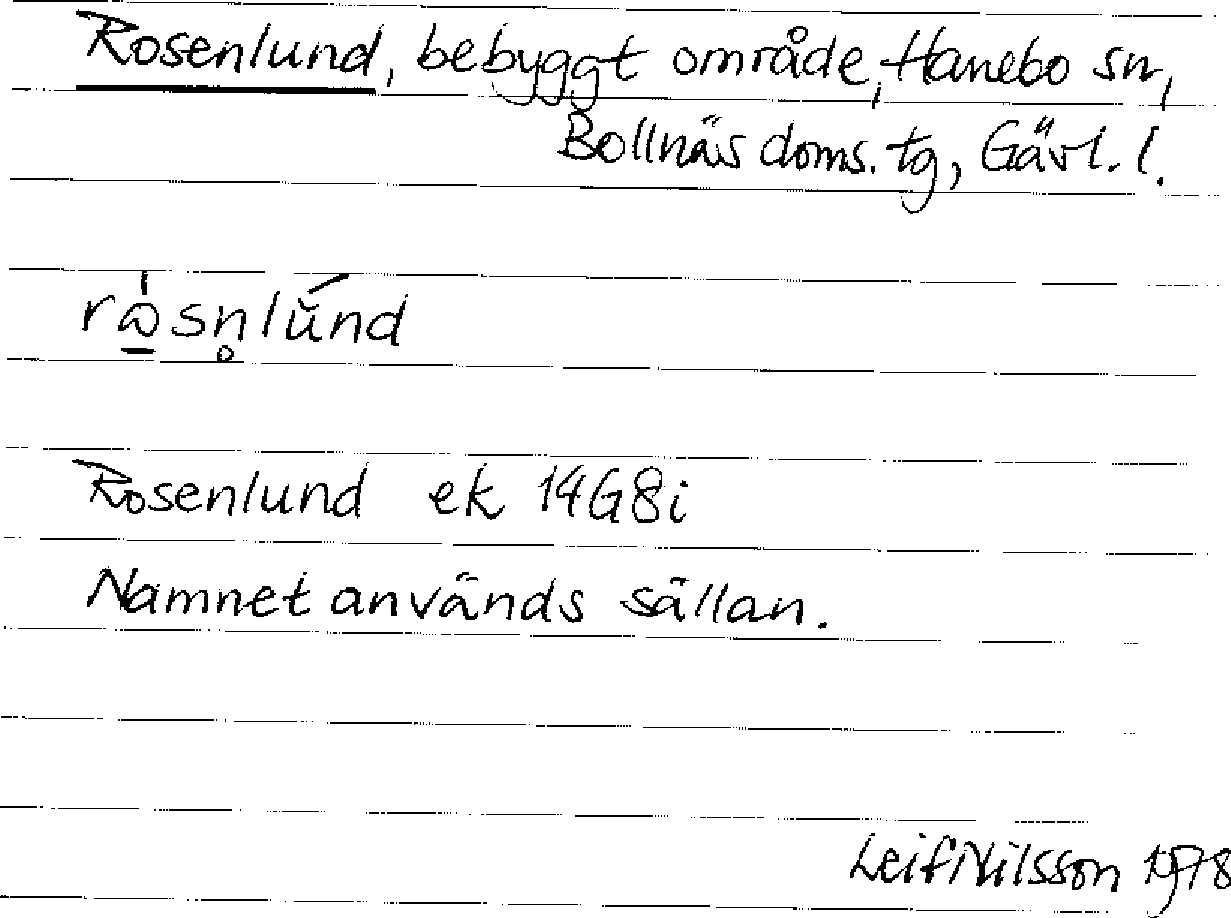 Rosenlund, bebyggt område, Hanebo sn,
Bollnäs doms. tg, Gävl. l.
rω̲̍sn̥lŭ́nd
Rosenlund ek 14G8i
Namnet används sällan.
Leif Nilsson 1978